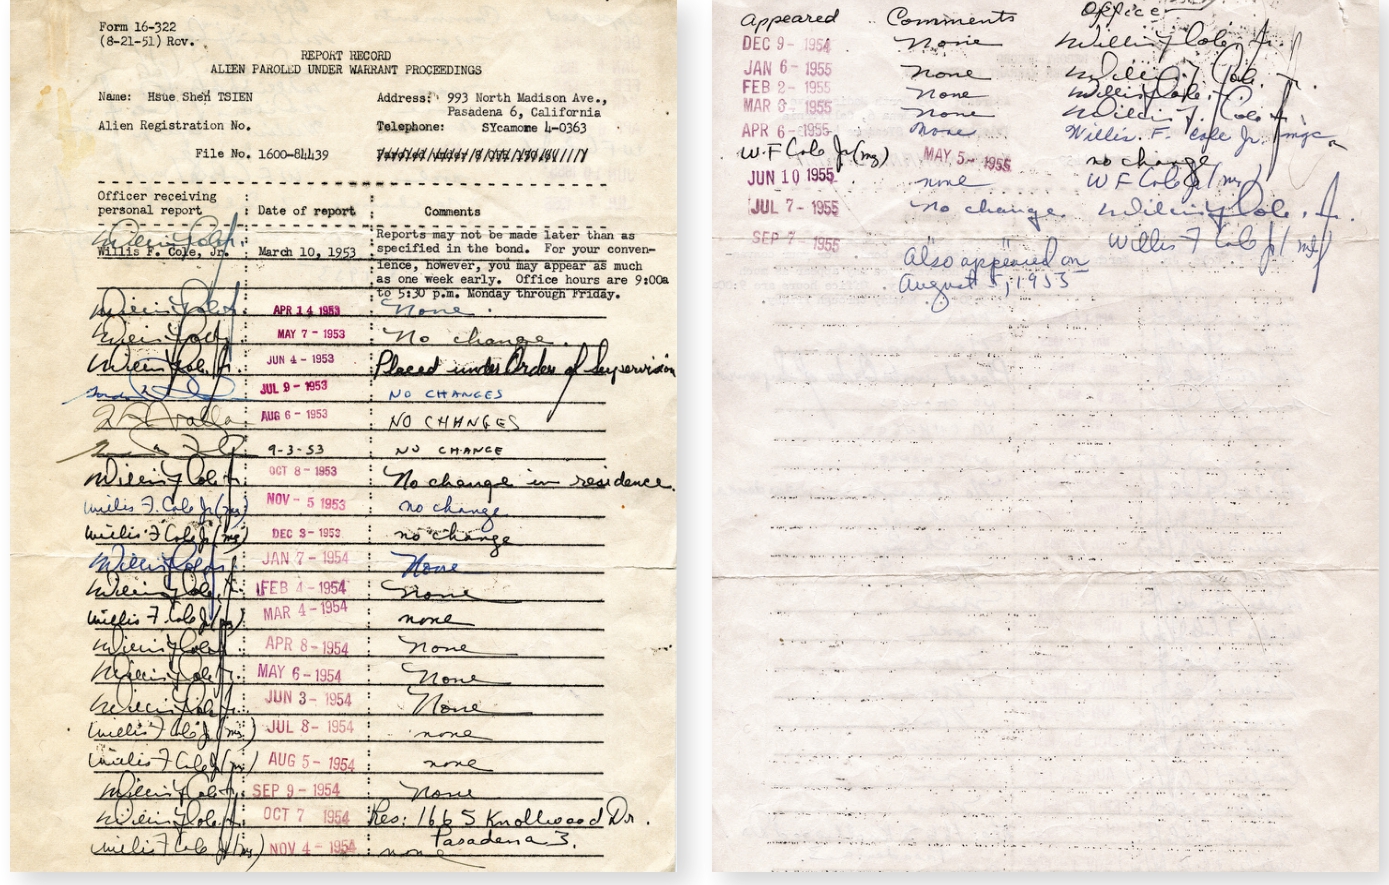 Form 16-322
(8-21-51) Rev.
REPORT RECORD
ALIEN PAROLED UNDER WARRANT PROCEEDINGS
Name: Hsue Shen TSIEN
Address: 993 North Madison Ave.,
Pasadena 6, California
Alien Registration No.
Telephone: SYcamore 4-0363
File No. 1600-84439
Officer receiving
personal report
Date of report
Comments
Willis F. Cole, Jr.
March 10, 1953
Reports may not be made later than as
specified in the bond. For your conven-
ience, however, you may appear as much
as one week early. Office hours are 9:00a
to 5:30 p.m. Monday through Friday.
Willis F Cole Jr. APR 14 1953 None.
Willis F Cole Jr. MAY 7 - 1953 No change.
Willis F Cole Jr. JUN 4 - 1953 Placed under Order of Supervision
JUL 9 - 1953 NO CHANGES
AUG 6 - 1953 NO CHANGES
9-3-53 NO CHANGE
Willis F Cole Jr. OCT 8 - 1953 No change in residence.
Willis F. Cole Jr (mg) NOV - 5 1953 no change
Willis F Cole Jr (mg) DEC 3 - 1953 no change
Willis F Cole Jr. JAN 7 - 1954 None
Willis F Cole Jr. FEB 4 - 1954 None
Willis F. Cole Jr (mg) MAR 4 - 1954 none
Willis F Cole Jr. APR 8 - 1954 None
Willis F Cole Jr. MAY 6 - 1954 None
Willis F Cole Jr. JUN 3 - 1954 None
Willis F Cole Jr (mg) JUL 8 - 1954 none
Willis F Cole Jr (mg) AUG 5 - 1954 none
Willis F Cole Jr. SEP 9 - 1954 None
Willis F Cole Jr. OCT 7 1954 Res: 166 S Knollwood Dr.
Pasadena 3.
Willis F Cole Jr (mg) NOV 4 - 1954 none
Appeared Comments Office
DEC 9 - 1954 None Willis F Cole, Jr.
JAN 6 - 1955 None Willis F Cole Jr.
FEB 2 - 1955 None Willis F Cole Jr.
MAR 3 - 1955 None Willis F Cole Jr.
APR 6 - 1955 None Willis. F. Cole Jr. mgc
W.F Cole Jr (mg) MAY 5 - 1955 no change
JUN 10 1955 none W F Cole Jr (mg)
JUL 7 - 1955 No change. Willis F Cole, Jr.
SEP 7 - 1955 Willis F Cole Jr (mg)
Also appeared on
August 5, 1955